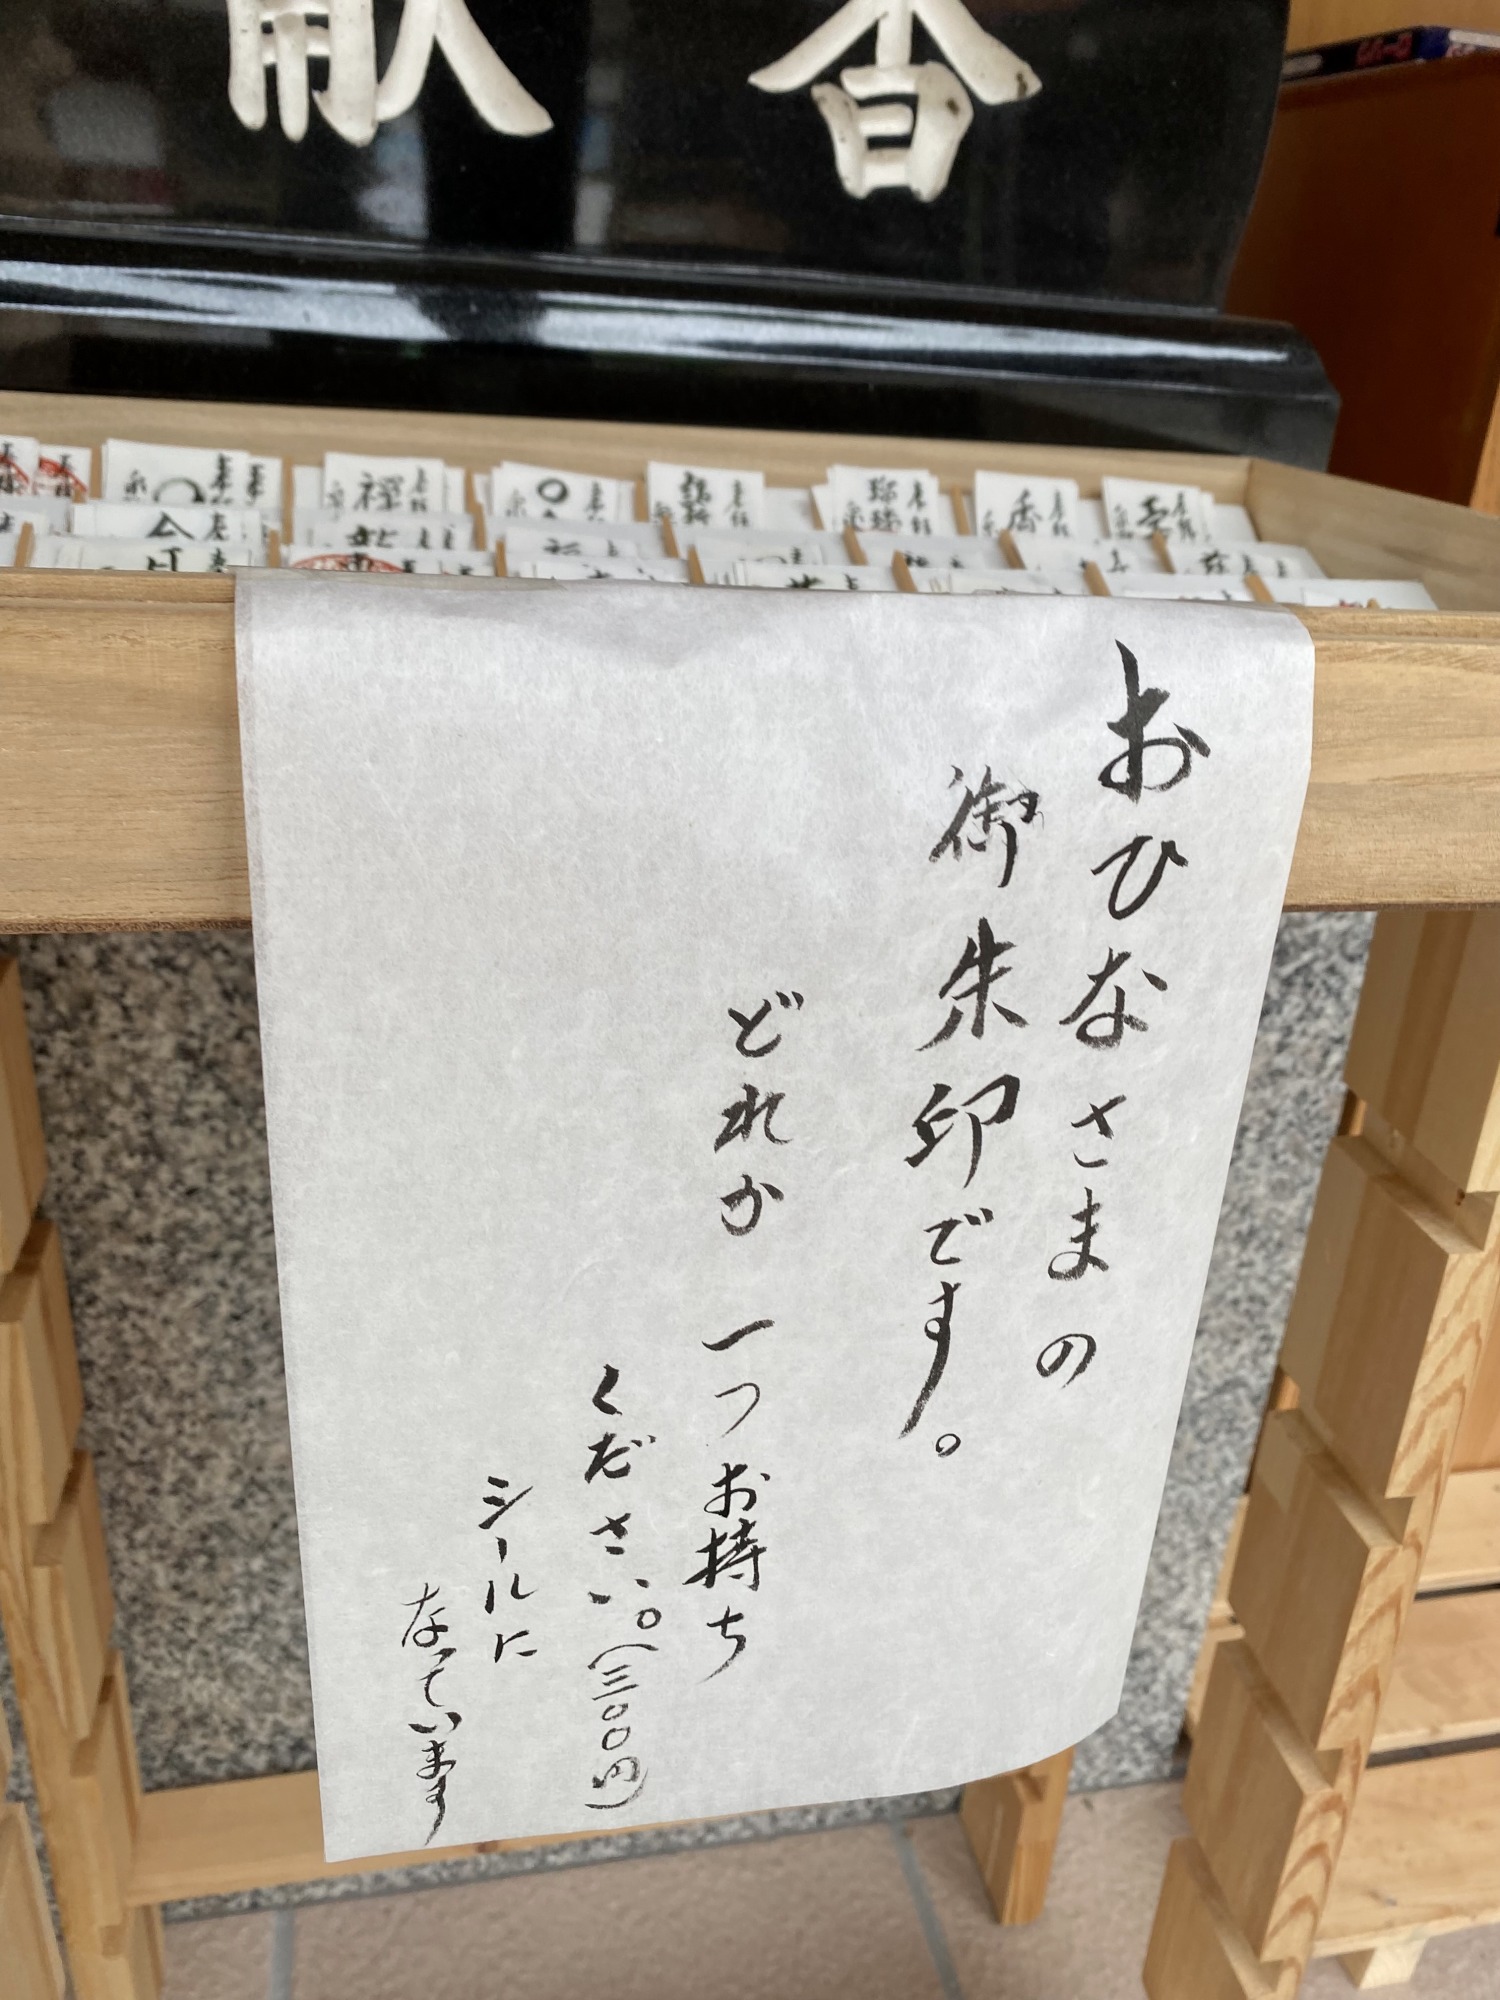 献香
おひなさまの
御朱印です。
どれか一つお持ち
ください。(三〇〇円)
シールに
なっています
禅
香